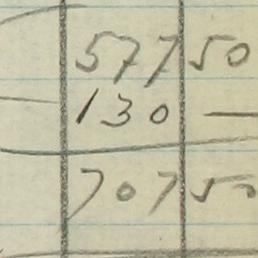 577 50
130 —
707 50